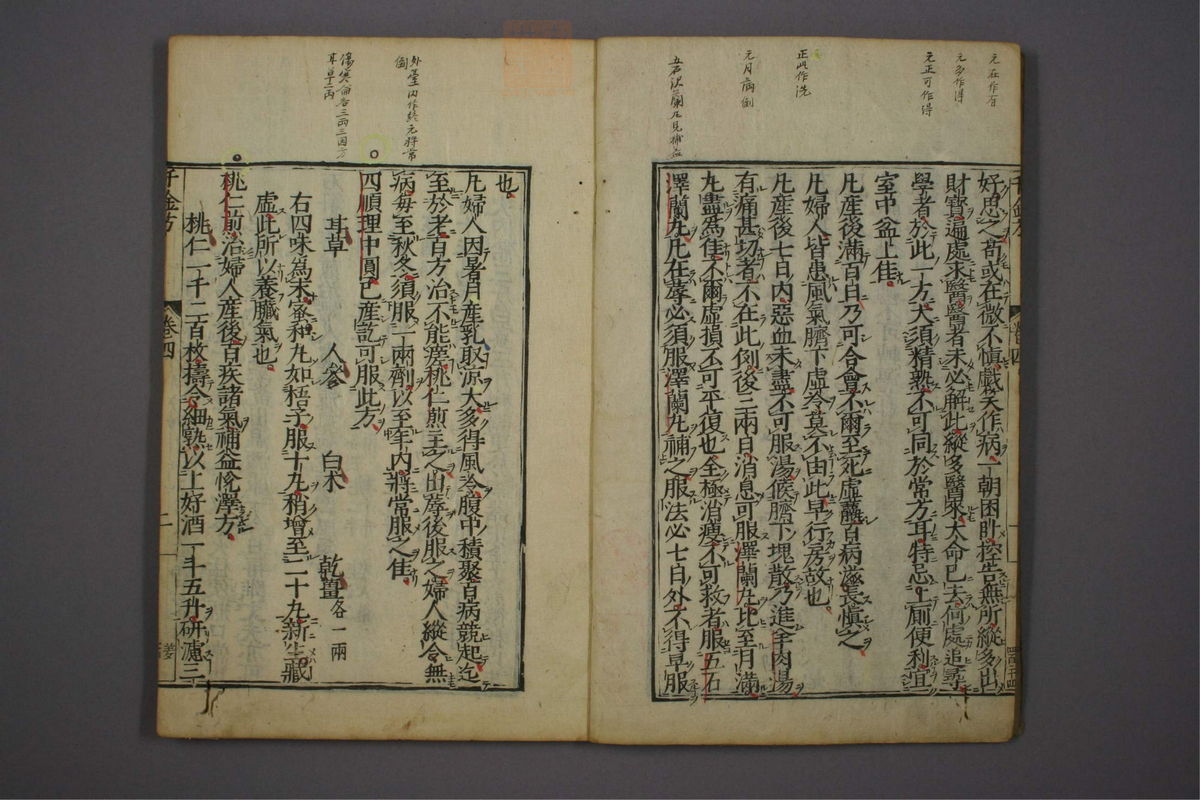 元在作有
元多作得
元正可作得
正此作洗
元月病倒
好思之苟或在微不慎戲笑作病一朝困臥控告無所縱多出
財寶遍處求醫醫者未必解此縱多醫來大命已去何處追尋
學者於此一方大須精熟不可同於常方耳特忌上厠便利宜
室中盆上佳
凡產後滿百日乃可合會不爾至死虛羸百病滋長慎之
凡婦人皆患風氣臍下虛冷莫不由此早行房故也
凡產後七日內惡血未盡不可服湯候臍下塊散乃進羊肉湯
有痛甚切者不在此例後三兩日消息可服澤蘭丸比至月滿
丸盡爲佳不爾虛損不可平復也全極消瘦不可救者服五石
澤蘭丸凡在蓐必須服澤蘭丸補之服法必七日外不得早服
外臺內作終元拌常
傷寒論各三兩三因方
耳草二丙
也
凡婦人因暑月產乳取凉太多得風冷腹中積聚百病競起迄
至於老百方治不能瘥桃仁煎主之出蓐後服之婦人縱令無
病每至秋冬須服一兩劑以至年內將常服之佳
四順理中圓已產訖可服此方
耳草 人參 白朮 乾薑各一兩
右四味爲末蜜和丸如梧子服十丸稍增至二十九新生藏
虛此所以養臟氣也
桃仁煎治婦人產後百疾諸氣補益恱澤方
桃仁一千二百枚擣令細熟以上好酒一斗五升研濾三
千金方 卷四 二